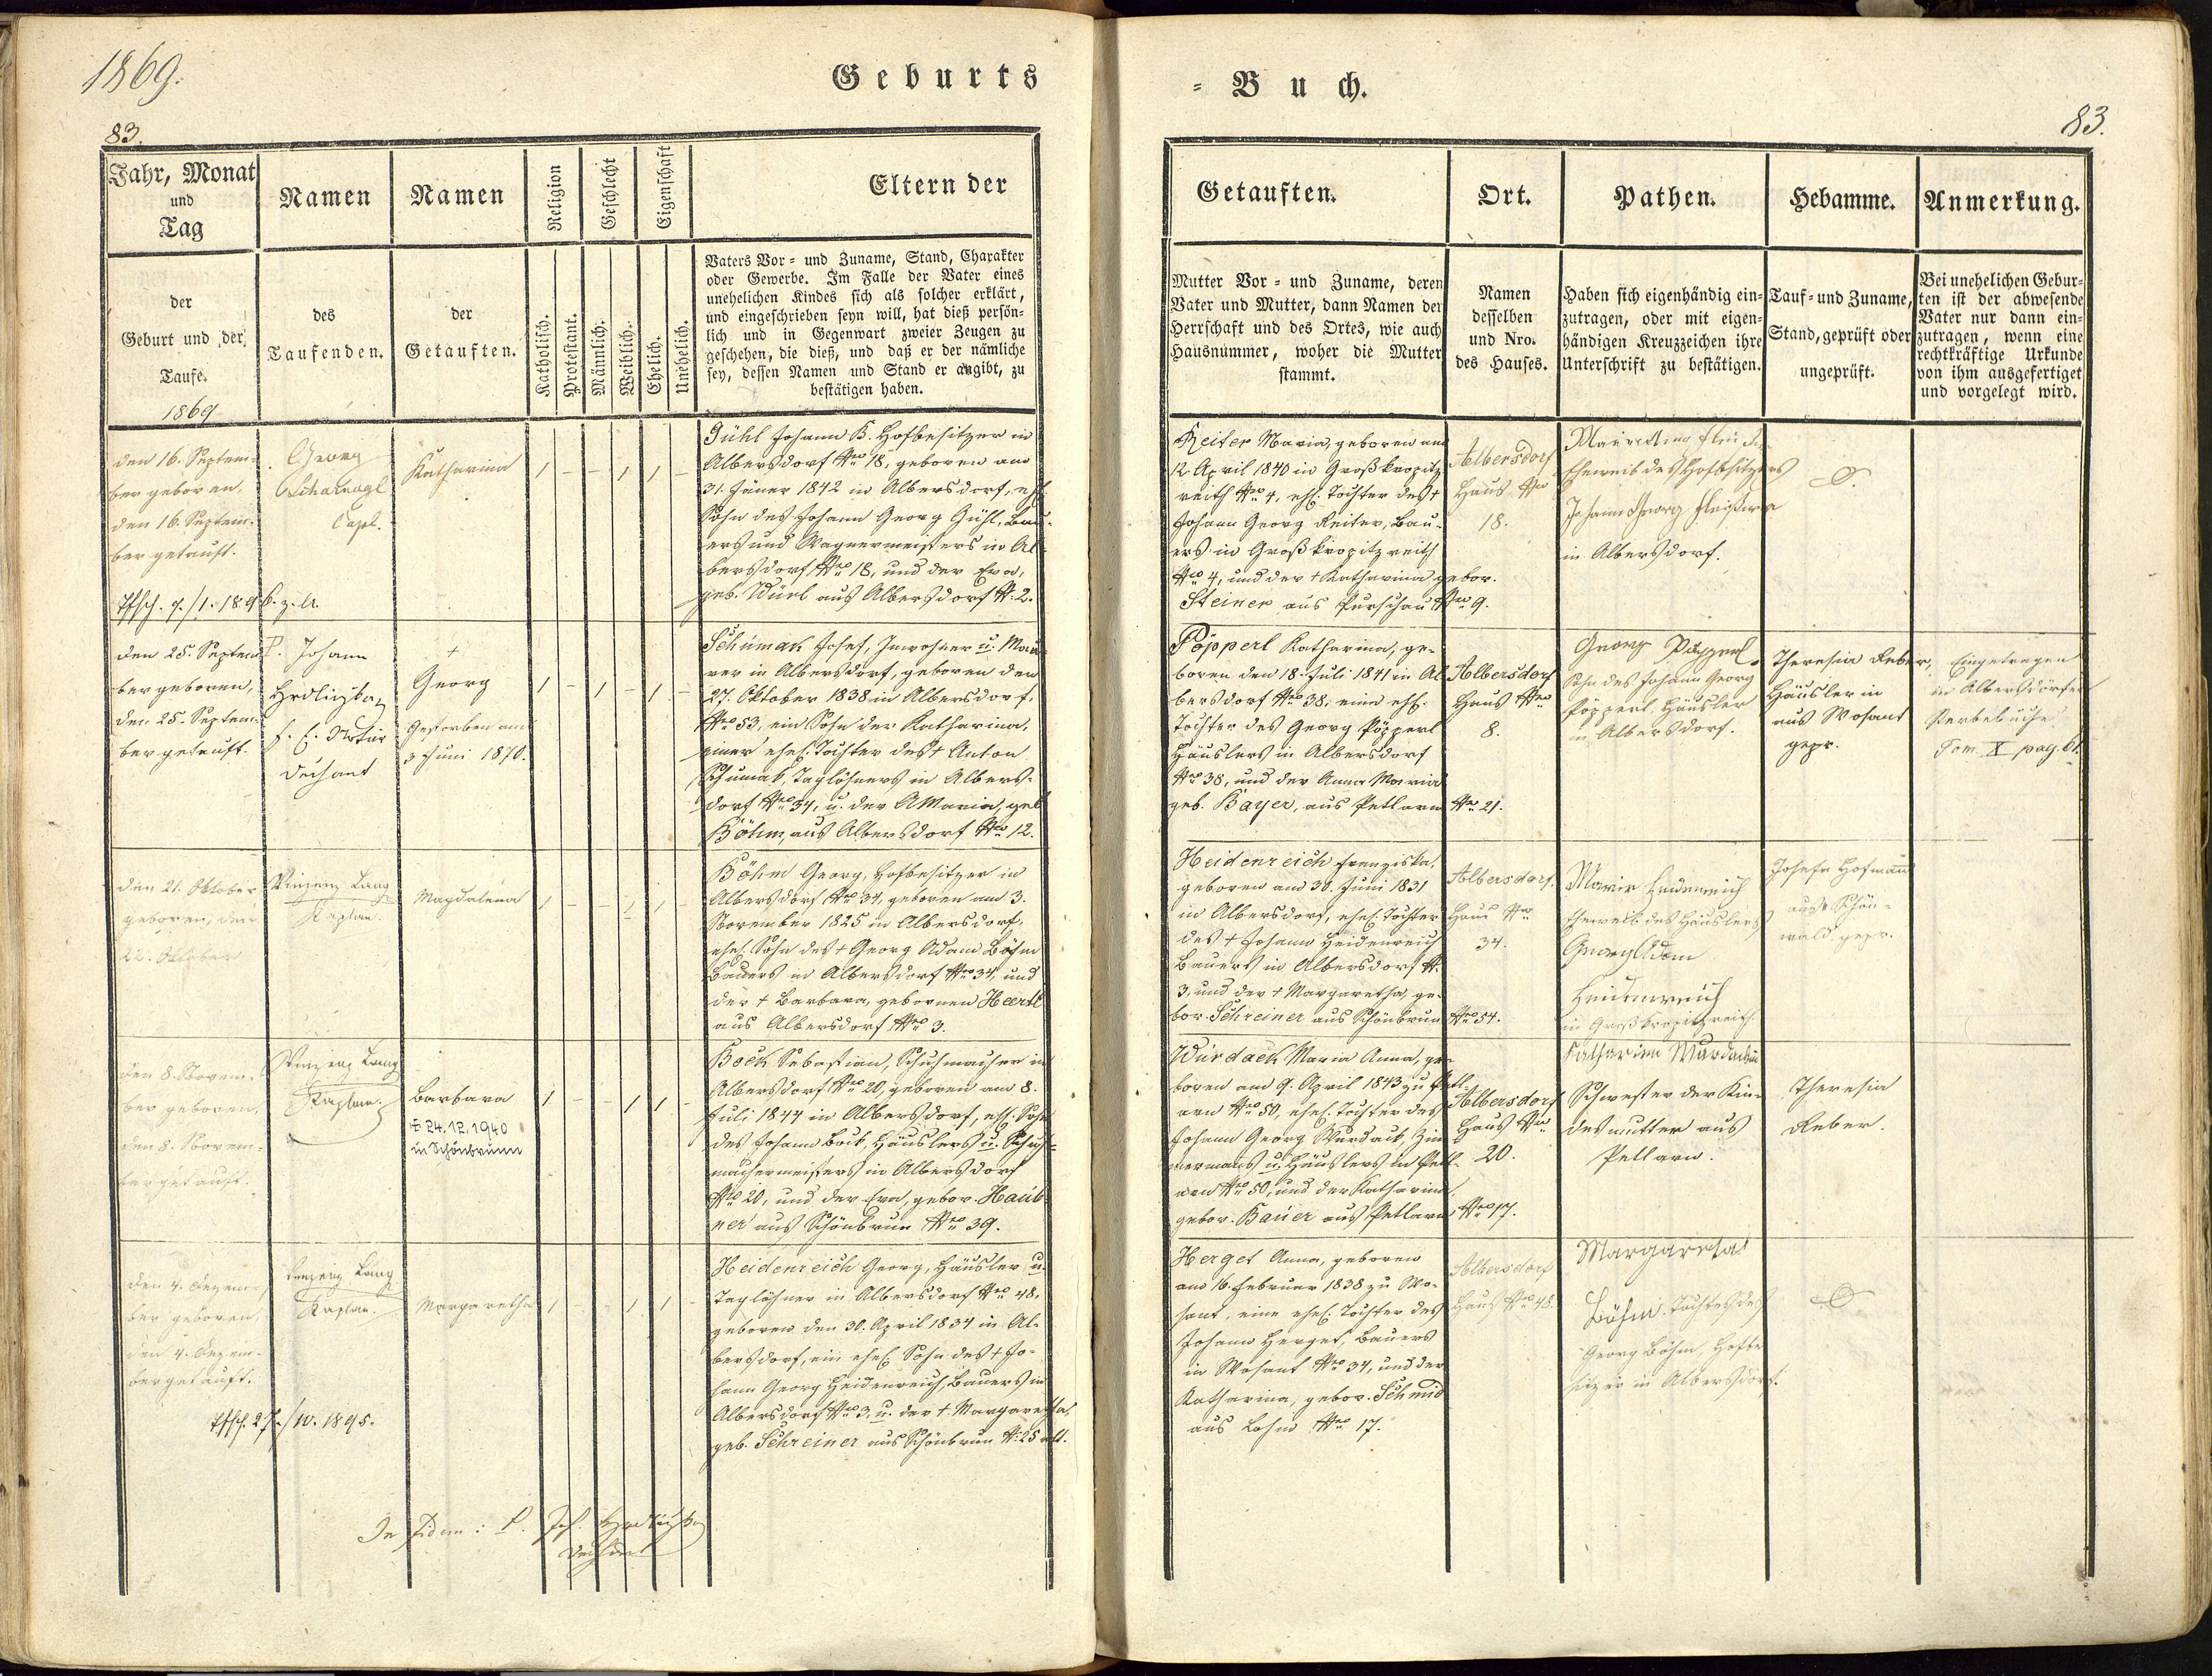 1869.
Geburts
= Buch.
83.
83.
Jahr, Monat
und
Tag
Namen
Namen
Religion
Geschlecht
Eigenschaft
Eltern der
Getauften.
Ort.
Pathen.
Hebamme.
Anmerkung.
der
Geburt und der
Taufe.
des
Taufenden.
der
Getauften.
Katholisch.
Protestant.
Männlich.
Weiblich.
Ehelich.
Unehelich.
Vaters Vor- und Zuname, Stand, Charakter
oder Gewerbe. Im Falle der Vater eines
unehelichen Kindes sich als solcher erklärt,
und eingeschrieben seyn will, hat dieß persön-
lich und in Gegenwart zweier Zeugen zu
geschehen, die dieß, und daß er der nämliche
sey, dessen Namen und Stand er angibt, zu
bestätigen haben.
Mutter Vor- und Zuname, deren
Vater und Mutter, dann Namen der
Herrschaft und des Ortes, wie auch
Hausnummer, woher die Mutter
stammt.
Namen
desselben
und Nro.
des Hauses.
Haben sich eigenhändig ein-
zutragen, oder mit eigen-
händigen Kreuzzeichen ihre
Unterschrift zu bestätigen.
Tauf- und Zuname,
Stand, geprüft oder
ungeprüft.
Bei unehelichen Gebur-
ten ist der abwesende
Vater nur dann ein-
zutragen, wenn eine
rechtkräftige Urkunde
von ihm ausgefertiget
und vorgelegt wird.
1869
den 16. Septem-
ber geboren,
den 16. Septem-
ber getauft.
Georg
Scharnagl
Capl.
Katharina
1 - - 1 1 -
Gühl Johann B. Hofbesitzer in
Albersdorf Nro 18, geboren am
31. Jäner 1842 in Albersdorf, ehl.
Sohn des Johann Georg Gühl, Bau-
ers und Wagnermeisters in Al-
bersdorf Nro 18, und der Eva,
geb. Würl aus Albersdorf N. 2.
Reiter Maria, geboren am
12 April 1840 in Großkropitz-
reith Nro 4, ehl. Tochter des †
Johann Georg Reiter, Bau-
ers in Großkropitzreith
Nro 4, und der † Katharina gebor.
Steiner aus Purschau Nro 9.
Albersdorf
Haus Nro
18.
Eheweib des Hofbesitzers
Johann Georg
in Albersdorf.
den 25. Septem-
ber geboren,
den 25. Septem-
ber getauft.
P. Johann
Hrdliczka
Dechant
†
Georg
Gestorben am
3 Juni 1870.
1 - 1 - 1 -
Schumak Josef, Inwohner u. Mau-
rer in Albersdorf, geboren den
27. Oktober 1838 in Albersdorf,
Nro 53, ein Sohn der Katharina,
einer ehel. Tochter des † Anton
Schumak, Taglöhners in Albers-
dorf Nro 34, u. der AMaria, geb.
Böhm, aus Albersdorf Nro 12.
Pöpperl Katharina, ge-
boren den 18. Juli 1841 in Al-
bersdorf Nro 38, eine ehl.
Tochter des Georg Pöpperl
Häuslers in Albersdorf
Nro 38, und der Anna Maria
geb. Bayer, aus Petlarn Nro 21.
Albersdorf
Haus Nro
8.
Georg Pöpperl
Sohn des Johann Georg
Pöpperl, Häusler
in Albersdorf.
Theresia Reber,
Häusler in
aus Wosant
gepr.
Eingetragen
in Albersdorfer
Sterbebuche
Tom. X pag. 61.
den 21. Oktober
geboren, den
22. Oktober
Vinzenz Lang
Kaplan.
Magdalena
1 - - 1 1 -
Böhm Georg, Hofbesitzer in
Albersdorf Nro 34, geboren am 3.
November 1825 in Albersdorf,
ehel. Sohn des † Georg Adam Böhm
Bauers in Albersdorf Nro 34, und
der † Barbara, gebornen Heertl
aus Albersdorf Nro 3.
Heidenreich Franziska,
geboren am 30. Juni 1831
in Albersdorf, ehel. Tochter
des † Johann Heidenreich
Bauers in Albersdorf N.
3, und der † Margaretha, ge-
bor. Schreiner aus Schönbrun Nro 54.
Albersdorf.
Haus Nro
34.
Maria Heidenreich
Eheweib des Häuslers
Georg Adam
Heidenreich
in Großkropitzreith
Josefa Hofmann
aus Schön-
wald gepr.
den 8. Novem-
ber geboren,
den 8. Novem-
ber getauft.
Vinzenz Lang
Kaplan.
Barbara
+ 24.12.1940
in Schönbrunn
1 - - 1 1 -
Bock Sebastian, Schuhmacher in
Albersdorf Nro 20, geboren am 8.
Juli 1844 in Albersdorf, ehl. Sohn
des Johann Bock, Häuslers u. Schuh-
machermeisters in Albersdorf
Nro 20, und der Eva, gebor. Haub-
ner aus Schönbrun Nro 39.
Würdack Maria Anna, ge-
boren am 9. April 1843 zu Petl-
arn Nro 50, ehel. Tochter des
Johann Georg Wurdack, Zim-
mermans u. Häuslers in Petl-
arn Nro 50, und der Katharina,
gebor. Bauer aus Petlarn, Nro 17.
Albersdorf
Haus Nro
20.
Katharina Wurdack
Schwester der Kin-
desmutter aus
Petlarn.
Theresia
Reber.
den 4. Dezem-
ber geboren,
den 4. Dezem-
ber getauft.
Vinzenz Lang
Kaplan.
Margaretha
1 - - 1 1 -
Heidenreich Georg, Häusler u.
Taglöhner in Albersdorf Nro 48,
geboren den 30. April 1834 in Al-
bersdorf, ein ehel. Sohn des † Jo-
hann Georg Heidenreich, Bauers in
Albersdorf Nro 3, u. der † Margaretha,
geb. Schreiner aus Schönbrun N. 25 alt.
Herget Anna, geboren
am 16. Februar 1838 zu Wo-
sant, eine ehel. Tochter des
Johann Herget, Bauers
in Wosant Nro 34, und der
Katharina, gebor. Schmid
aus Losen Nro 17.
Albersdorf
Haus Nro 48.
Margaretha
Böhm. Tochter des
Georg Böhm, Hofbe-
sitzer in Albersdorf.
27./10. 1895.
In fidem: P. Joh. Hrdliczka
Dechant